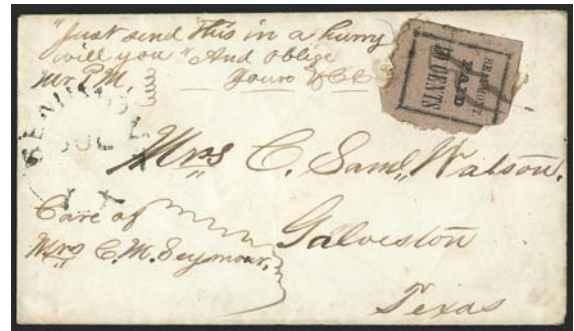 "Just send this in a hurry
will you" And oblige
Mr. P.M. Yours &C
BEAUMONT
PAID
10 CENTS
BEAUMONT
JUL
TX
Mrs C. Saml, Watson.
Care of
Mrs C. M. Seymour,
Galveston
Texas